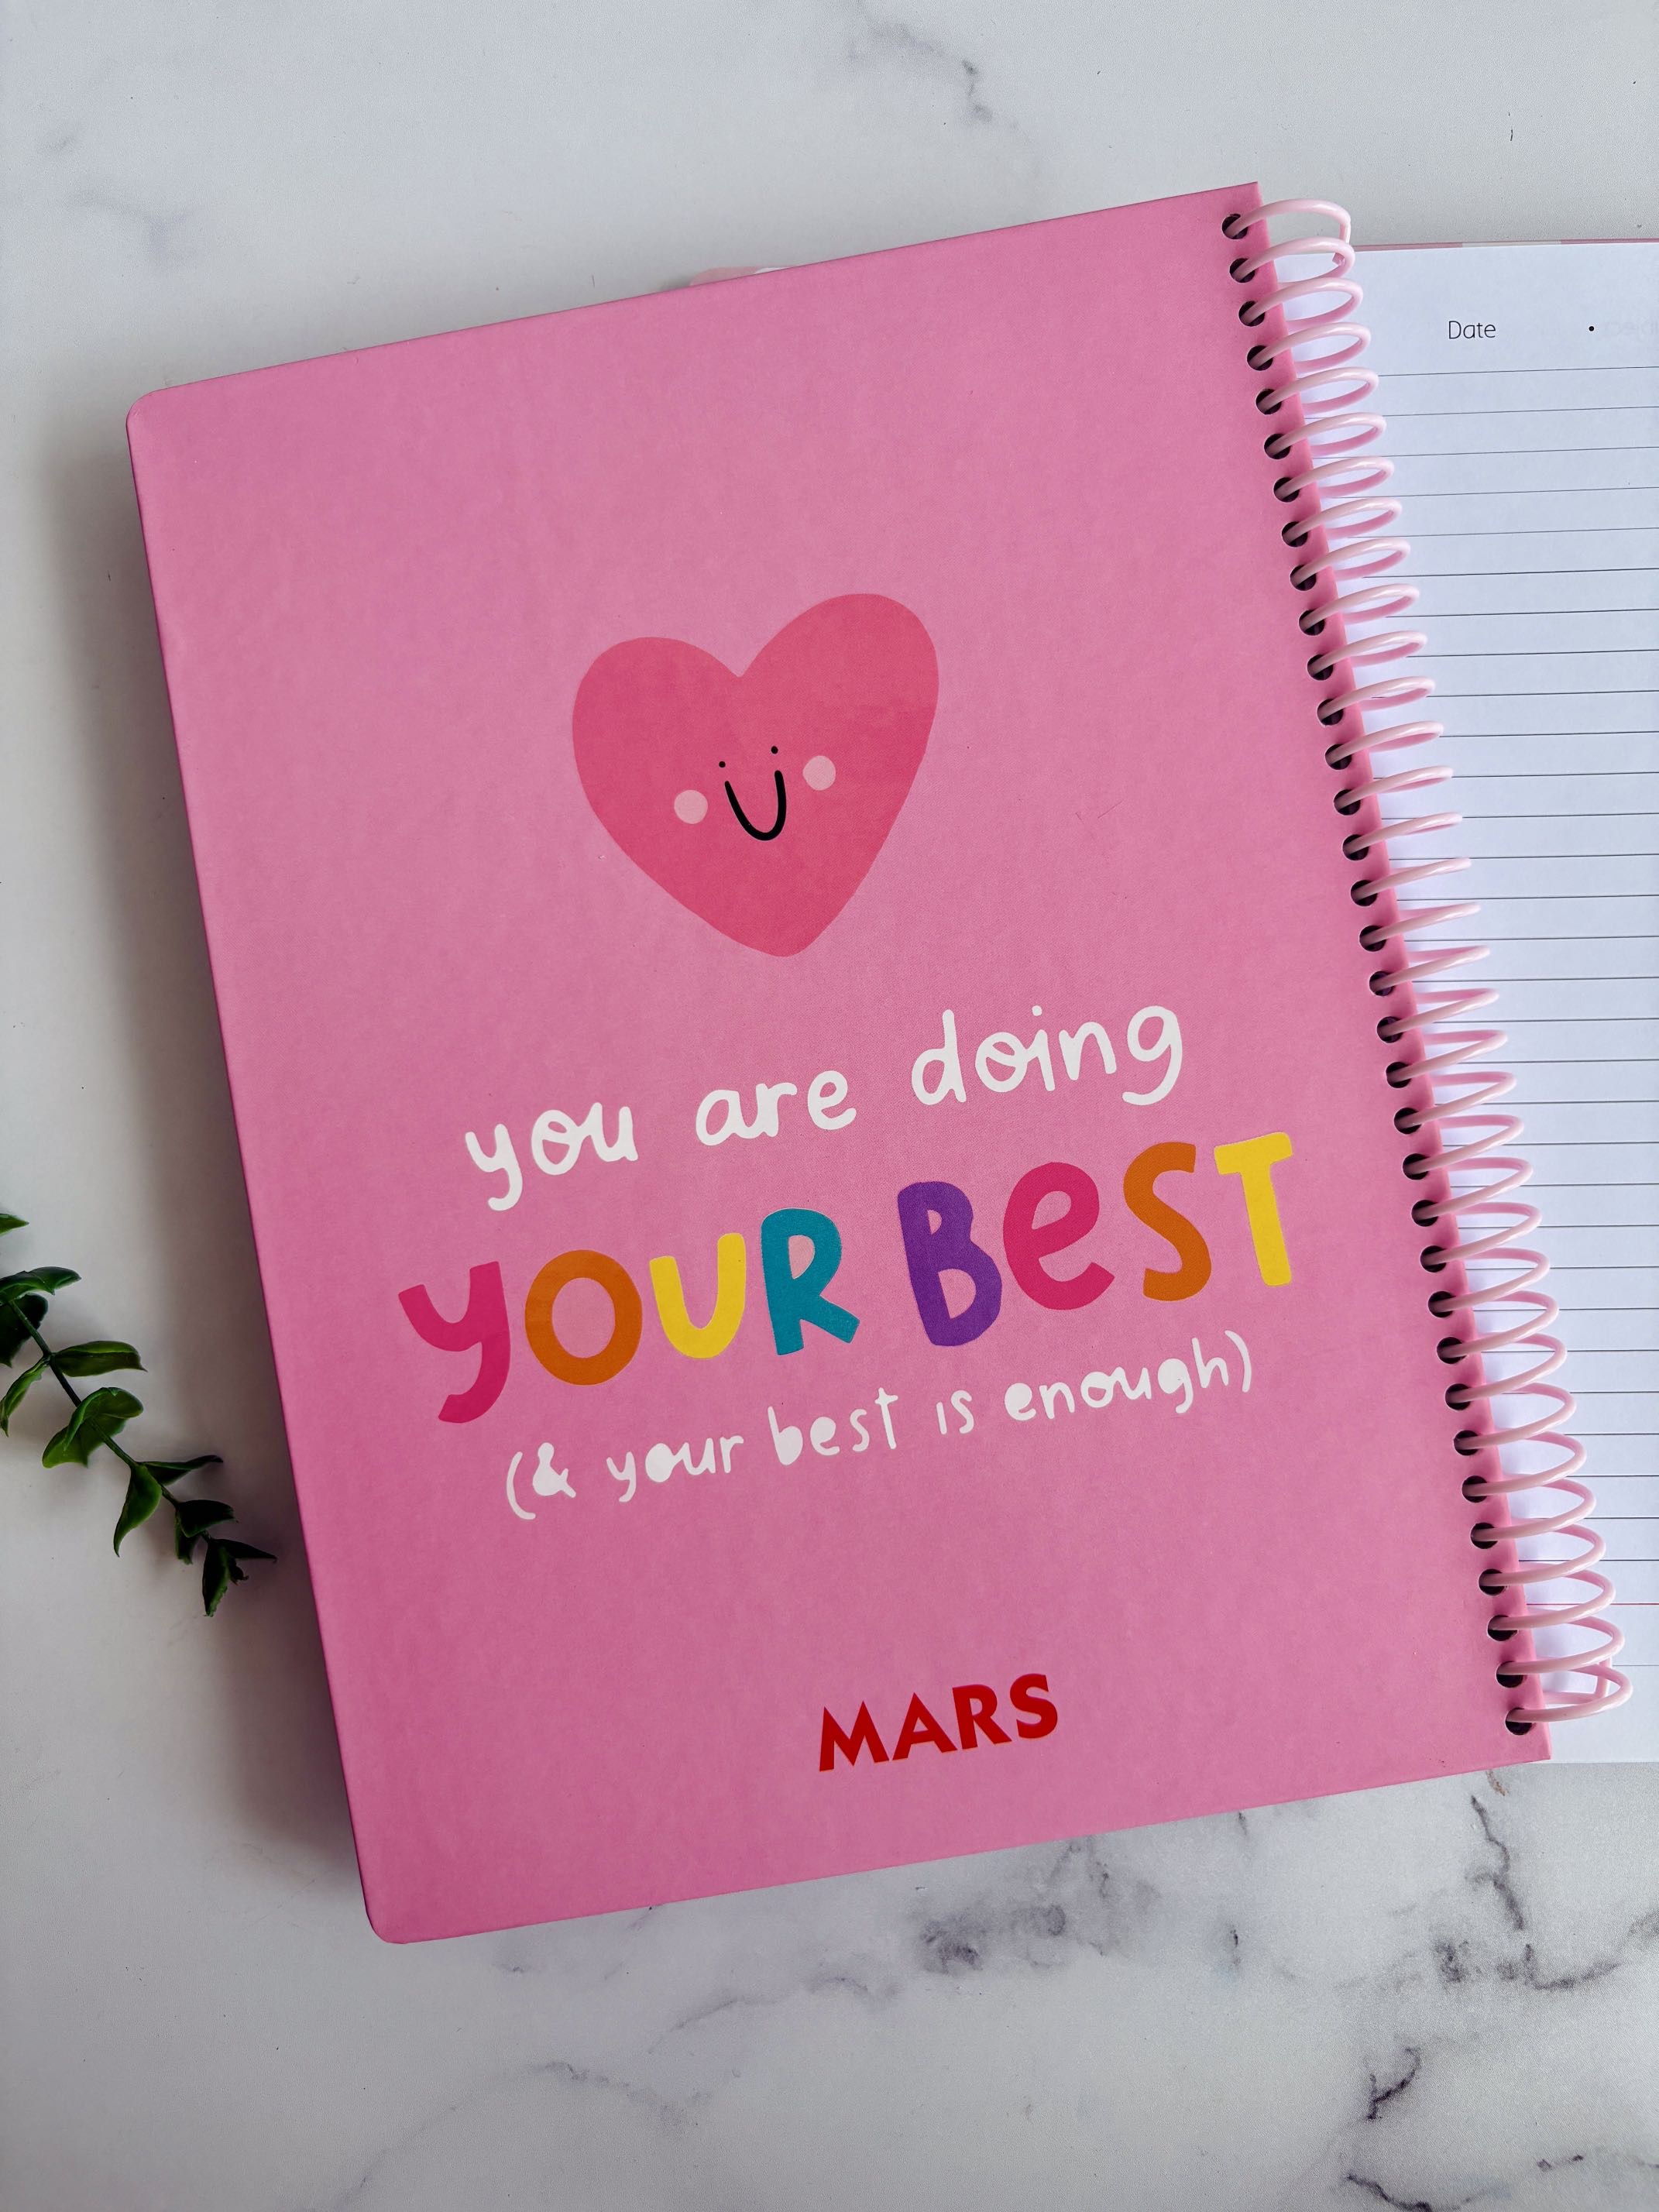 you are doing
YOUR BeST
(& your best is enough)
MARS
Date